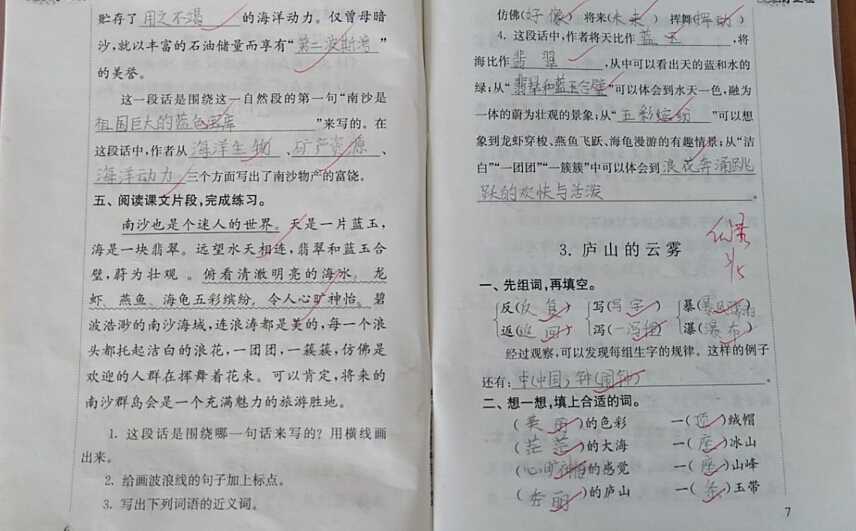 贮存了 用之不竭 的海洋动力。仅曾母暗
沙,就以丰富的石油储量而享有“第二波斯湾”
的美誉。
这一段话是围绕这一自然段的第一句“南沙是
祖国巨大的蓝色宝库”来写的。在
这段话中,作者从 海洋生物 、矿产资源 、
海洋动力 三个方面写出了南沙物产的富饶。
五、阅读课文片段,完成练习。
南沙也是个迷人的世界。天是一片蓝玉,
海是一块翡翠。远望水天相连,翡翠和蓝玉合
璧,蔚为壮观 。俯看清澈明亮的海水,龙
虾、燕鱼、海龟五彩缤纷,令人心旷神怡。碧
波浩渺的南沙海域,连浪涛都是美的,每一个浪
头都托起洁白的浪花,一团团,一簇簇,仿佛是
欢迎的人群在挥舞着花束。可以肯定,将来的
南沙群岛会是一个充满魅力的旅游胜地。
1. 这段话是围绕哪一句话来写的? 用横线画
出来。
2. 给画波浪线的句子加上标点。
3. 写出下列词语的近义词。
6
仿佛(好像) 将来(未来) 挥舞(挥动)
4. 这段话中,作者将天比作 蓝玉 ,将
海比作 翡翠 ,从中可以看出天的蓝和水的
绿;从“翡翠和蓝玉合璧”可以体会到水天一色,融为
一体的蔚为壮观的景象;从“五彩缤纷”可以想
象到龙虾穿梭、燕鱼飞跃、海龟漫游的有趣情景;从“洁
白”“一团团”“一簇簇”中可以体会到 浪花奔涌跳
跃的欢快与活泼 。
3. 庐山的云雾
一、先组词,再填空。
反(反复) 写(写字) 暴(
返(返回) 泻(一泻) 瀑(瀑布)
经过观察,可以发现每组生字的规律。这样的例子
还有: 中(中国) 钟(闹钟) 。
二、想一想,填上合适的词。
(美丽)的色彩 一(顶)绒帽
(茫茫)的大海 一(座)冰山
(心旷神怡)的感觉 一(座)山峰
(秀丽)的庐山 一(条)玉带
7